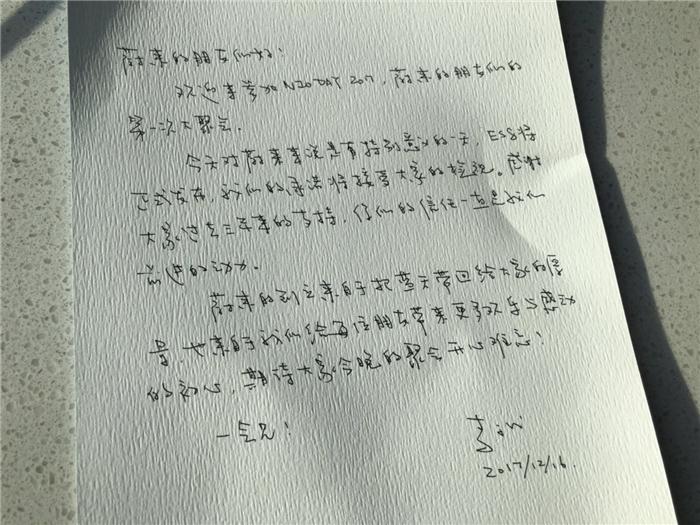 蔚来的朋友们好:
欢迎来参加NIO DAY 2017, 蔚来的朋友们的
第一次大聚会.
今天对蔚来来说是有特别意义的一天, ES8将
正式发布, 我们的承诺将接受大家的检视。感谢
大家过去三年来的支持, 你们的信任一直是我们
前进的动力.
蔚来的创立来自于把蓝天带回给大家的愿
景, 也来自于我们给每位朋友带来更多欢乐与感动
的初心, 期待大家今晚的聚会开心难忘!
一会见!
李斌
2017/12/16.